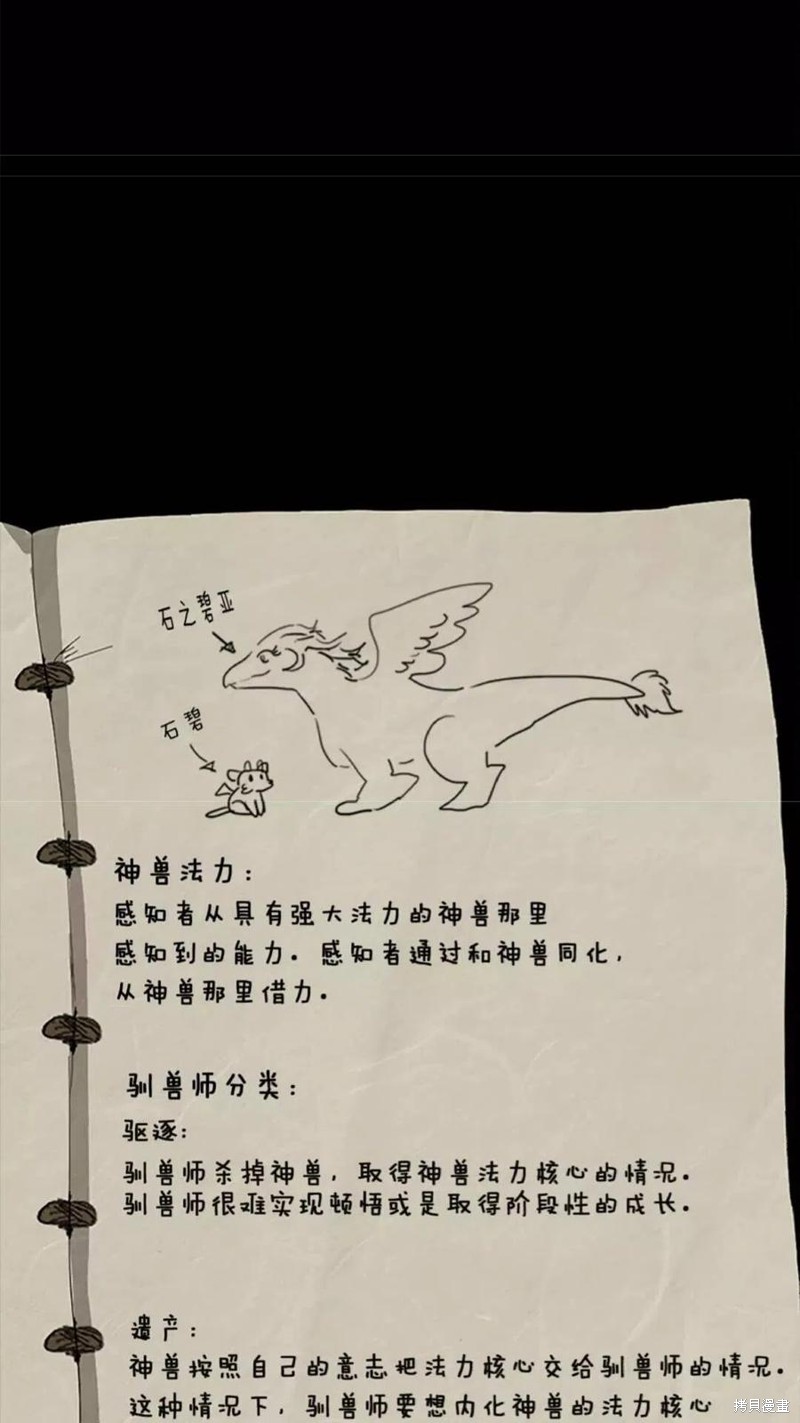 石之碧亚
石碧
神兽法力：
感知者从具有强大法力的神兽那里
感知到的能力．感知者通过和神兽同化，
从神兽那里借力．
驯兽师分类：
驱逐：
驯兽师杀掉神兽，取得神兽法力核心的情况．
驯兽师很难实现顿悟或是取得阶段性的成长．
遗产：
神兽按照自己的意志把法力核心交给驯兽师的情况．
这种情况下，驯兽师要想内化神兽的法力核心
拷貝漫畫